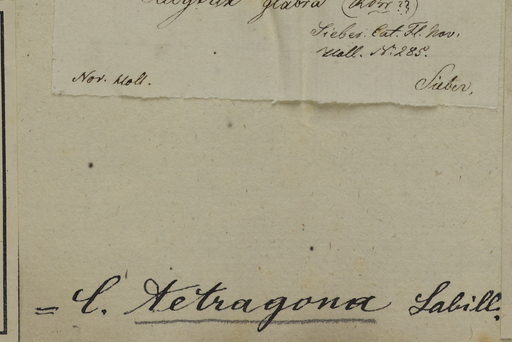 glabra
Sieber. Cat. Fl. Nov.
Holl. No. 285.
Nov. Holl.
Sieber.
= C. tetragona Labill.